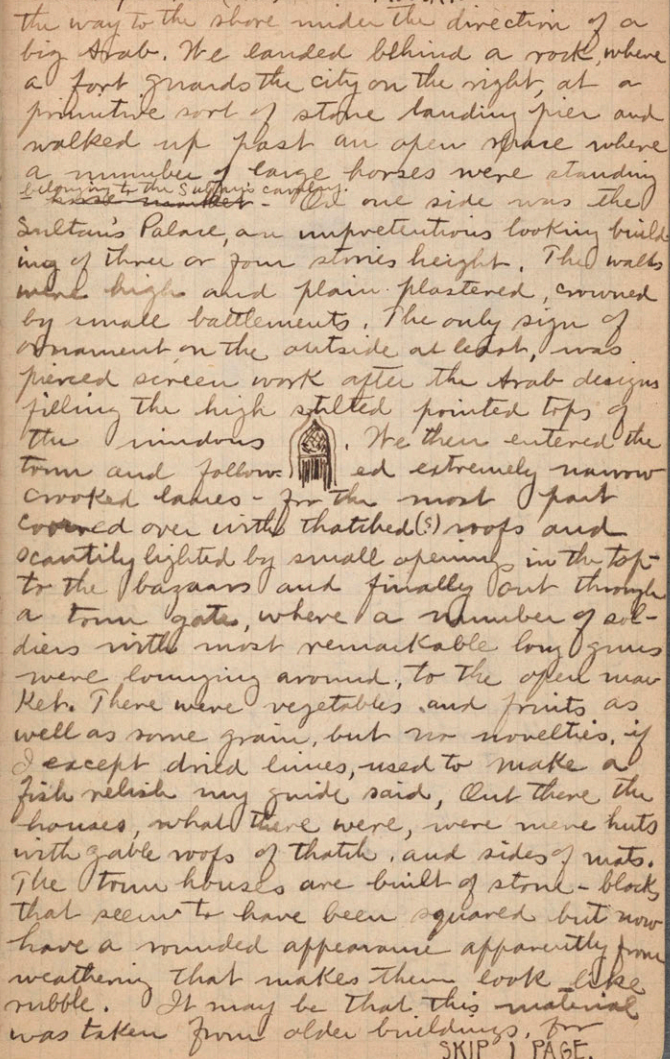 the way to the shore under the direction of a
big Arab. We landed behind a rock, where
a fort guards the city on the right, at a
primitive sort of stone landing pier and
walked up past an open place where
a number of large horses were standing
belonging to the Sultan's cavalry.
- On one side was the
Sultan's Palace, an unpretentious looking build-
ing of three or four stories height. The walls
were high and plain plastered, crowned
by small battlements. The only sign of
ornament, on the outside at least, was
pierced screen work after the Arab designs
filling the high stilted pointed tops of
the windows . We then entered the
town and follow- ed extremely narrow
crooked lanes - for the most part
covered over with thatched(?) roofs and
scantily lighted by small openings in the top-
to the bazaars and finally out through
a town gate, where a number of sol-
diers with most remarkable long guns
were lounging around, to the open mar
ket. There were vegetables and fruits as
well as some grain, but no novelties, if
I except dried limes, used to make a
fish relish my guide said, Out there the
houses, what there were, were mere huts
with gable roofs of thatch, and sides of mats.
The town houses are built of stone - blocks
that seem to have been squared but now
have a rounded appearance apparently from
weathering that makes them look like
rubble. It may be that this material
was taken from older buildings, for
SKIP 1 PAGE